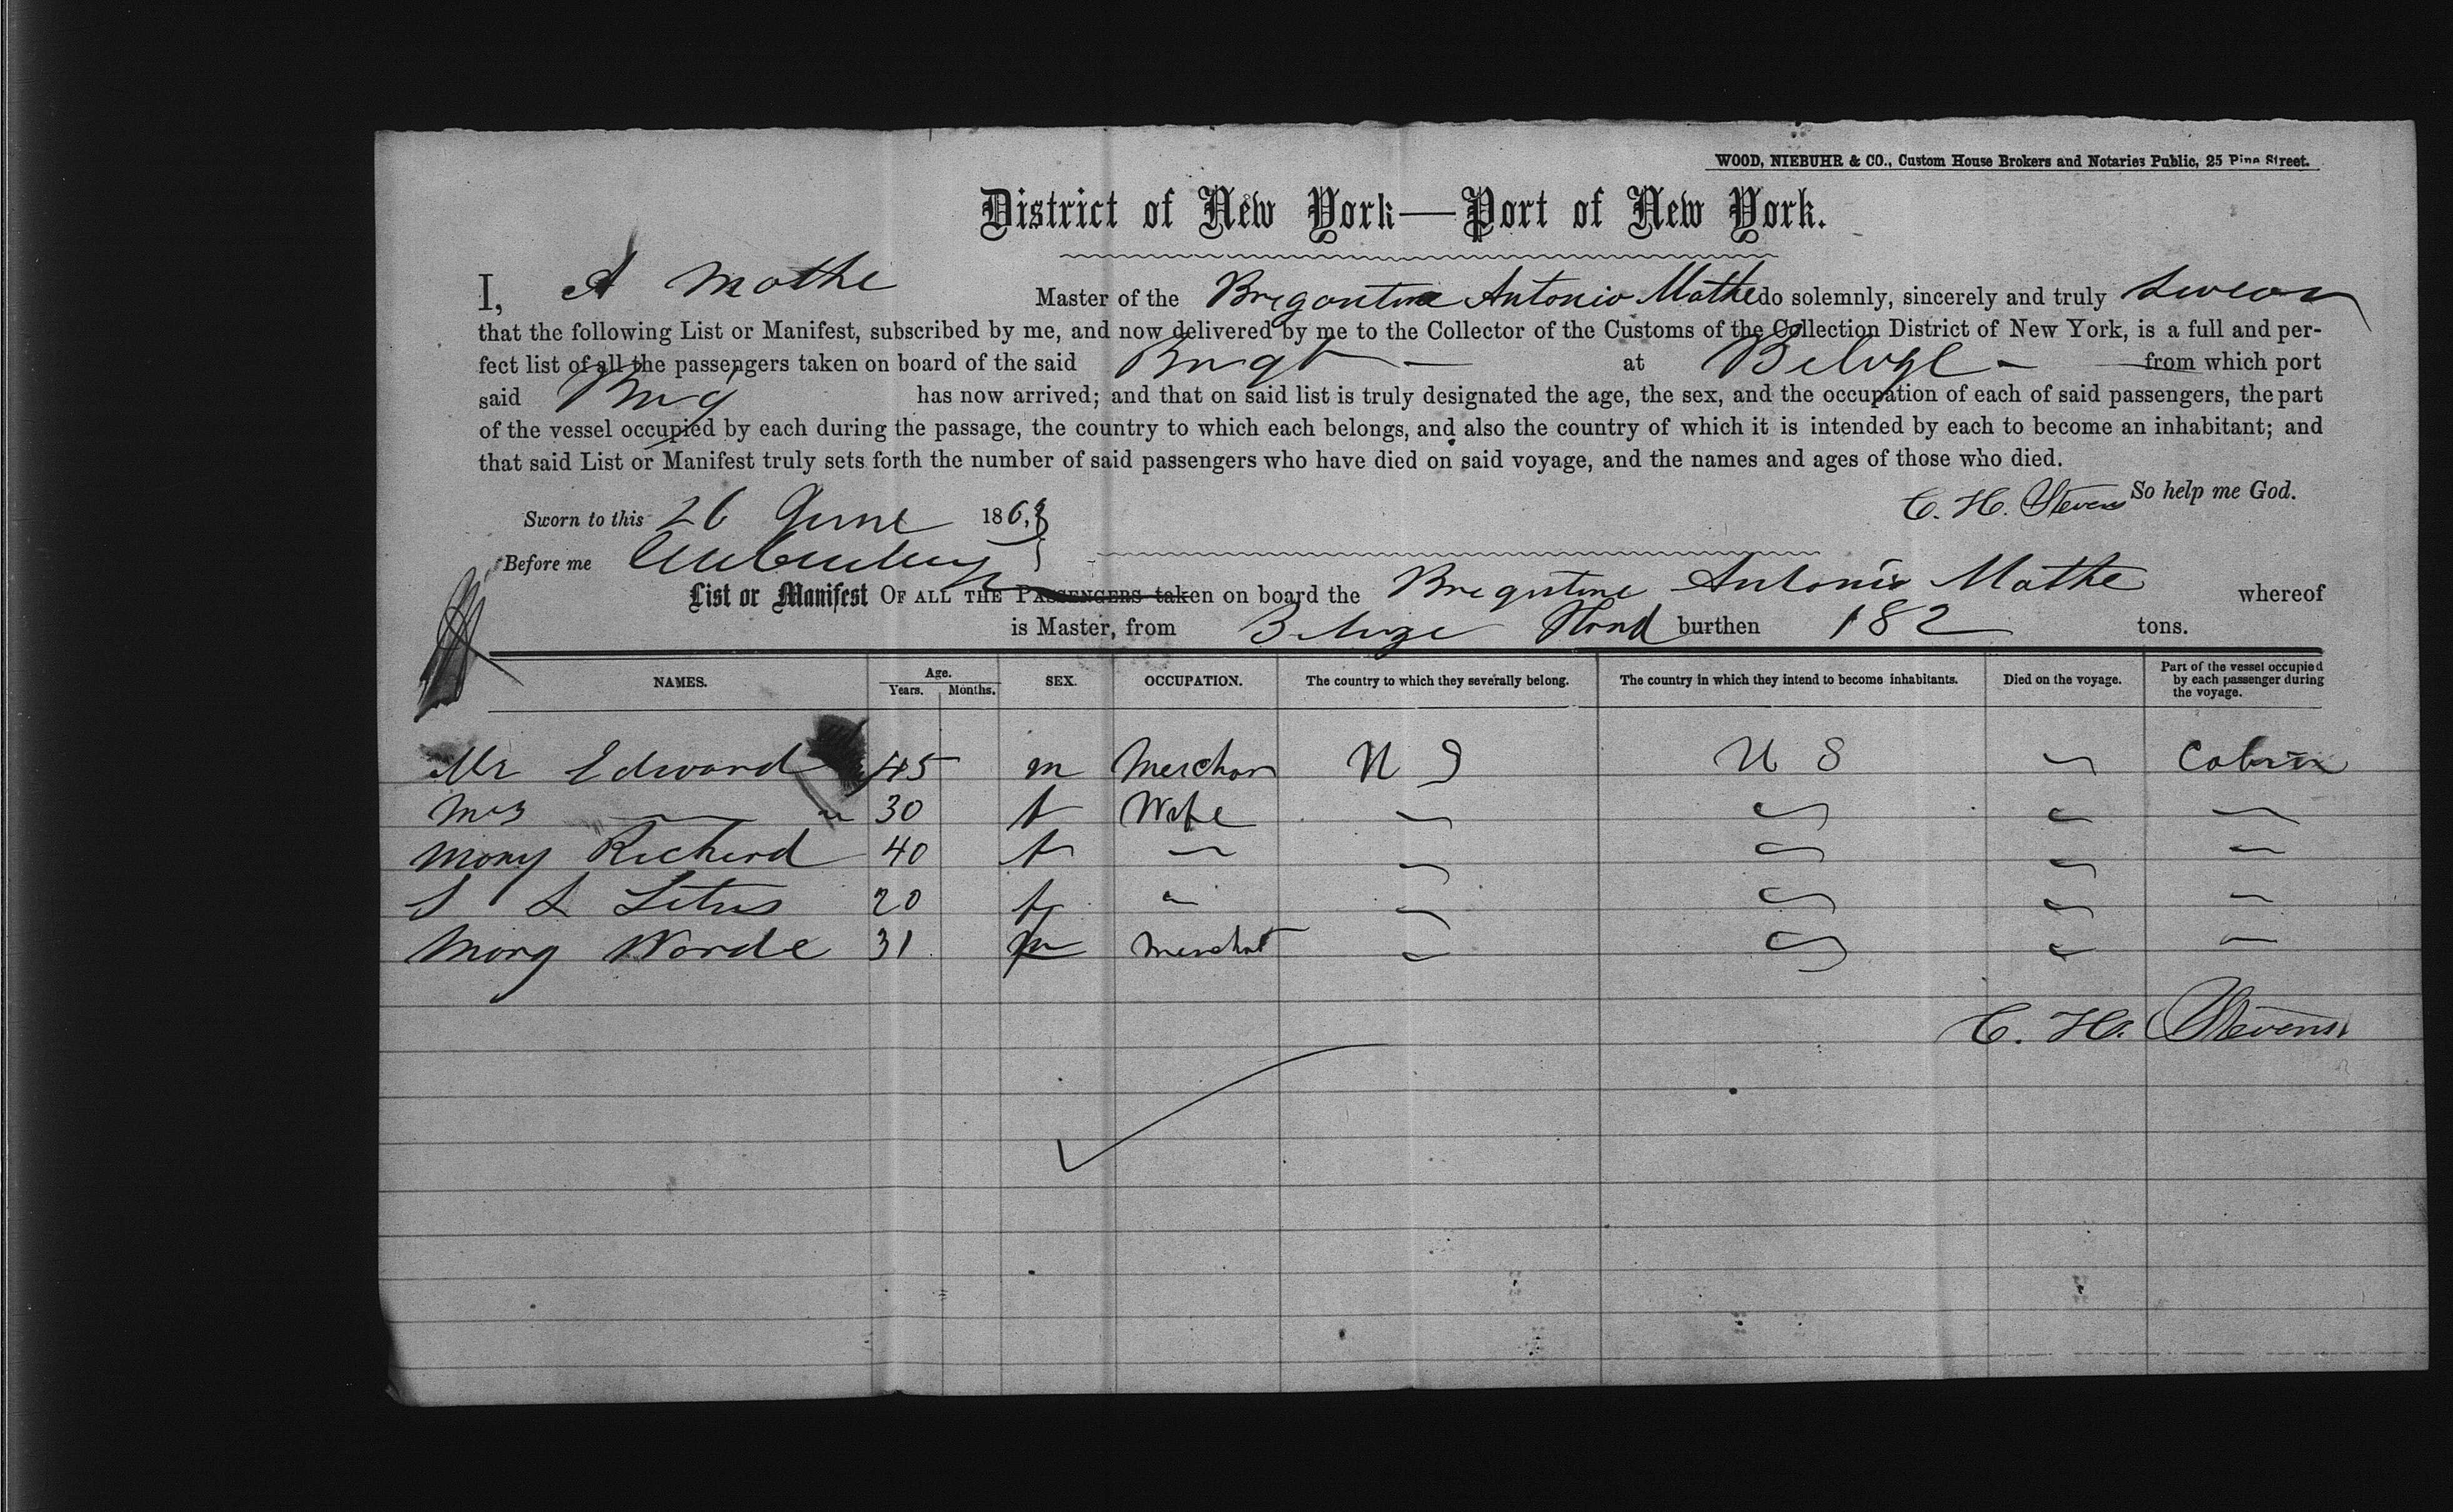 WOOD, NIEBUHR & CO., Custom House Brokers and Notaries Public, 25 Pine Street.
District of New York—Port of New York.
I, A Mathe Master of the Brigantine Antonio Mathe do solemnly, sincerely and truly swear
that the following List or Manifest, subscribed by me, and now delivered by me to the Collector of the Customs of the Collection District of New York, is a full and per-
fect list of all the passengers taken on board of the said Brigt at Belize from which port
said Brig has now arrived; and that on said list is truly designated the age, the sex, and the occupation of each of said passengers, the part
of the vessel occupied by each during the passage, the country to which each belongs, and also the country of which it is intended by each to become an inhabitant; and
that said List or Manifest truly sets forth the number of said passengers who have died on said voyage, and the names and ages of those who died.
C. H. Stevens So help me God.
Sworn to this 26 June 186,3
Before me
List or Manifest OF ALL THE PASSENGERS taken on board the Brigntine Antonio Mathe whereof
is Master, from Belize Hond burthen 182 tons.
NAMES. Age. Years. Months. SEX. OCCUPATION. The country to which they severally belong. The country in which they intend to become inhabitants. Died on the voyage. Part of the vessel occupied by each passenger during the voyage.
Mr Edward 45 m Merchan U S U S Cabin
Mrs — " 30 f Wife
Mary Richard 40 f
S L Litus 20 f
Marg Warde 31 Merchat
C. H. Stevens